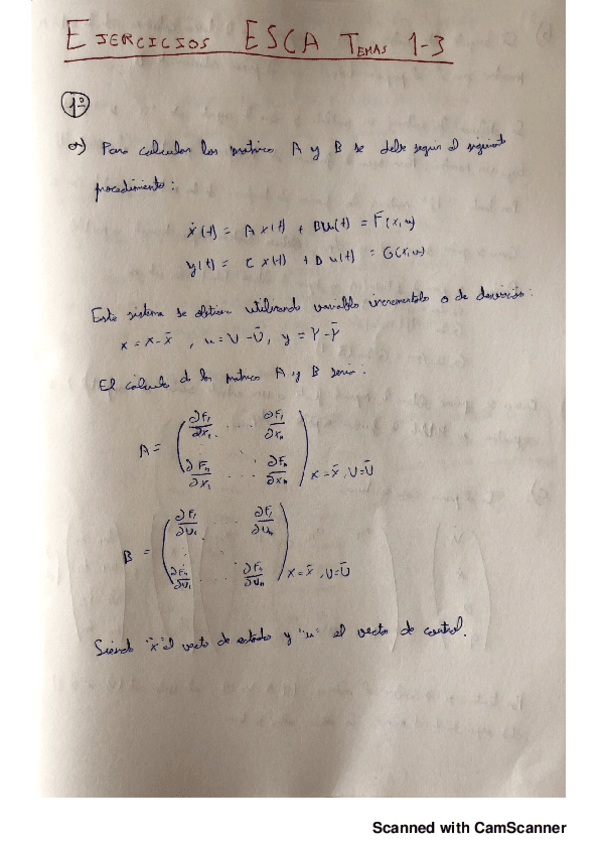 EJERCICIOS ESCA TEMAS 1-3
1º
a) Para calcular las matrices A y B se debe seguir el siguiente
procedimiento:
ẋ(t) = A x(t) + Bu(t) = F(x,u)
y(t) = C x(t) + D u(t) = G(x,u)
Este sistema se obtiene utilizando variables incrementales o de desviación:
x = X-X̄ , u = U-Ū, y = Y-Ȳ
El cálculo de las matrices A y B sería:
A = (∂F₁/∂x₁ ... ∂F₁/∂xₙ
∂Fₙ/∂x₁ ... ∂Fₙ/∂xₙ) x = x̄, U=Ū
B = (∂F₁/∂U₁ ... ∂F₁/∂Uₙ
∂Fₙ/∂U₁ ... ∂Fₙ/∂Uₙ) x = x̄, U=Ū
Siendo "x" el vector de estado y "u" el vector de control.
Scanned with CamScanner